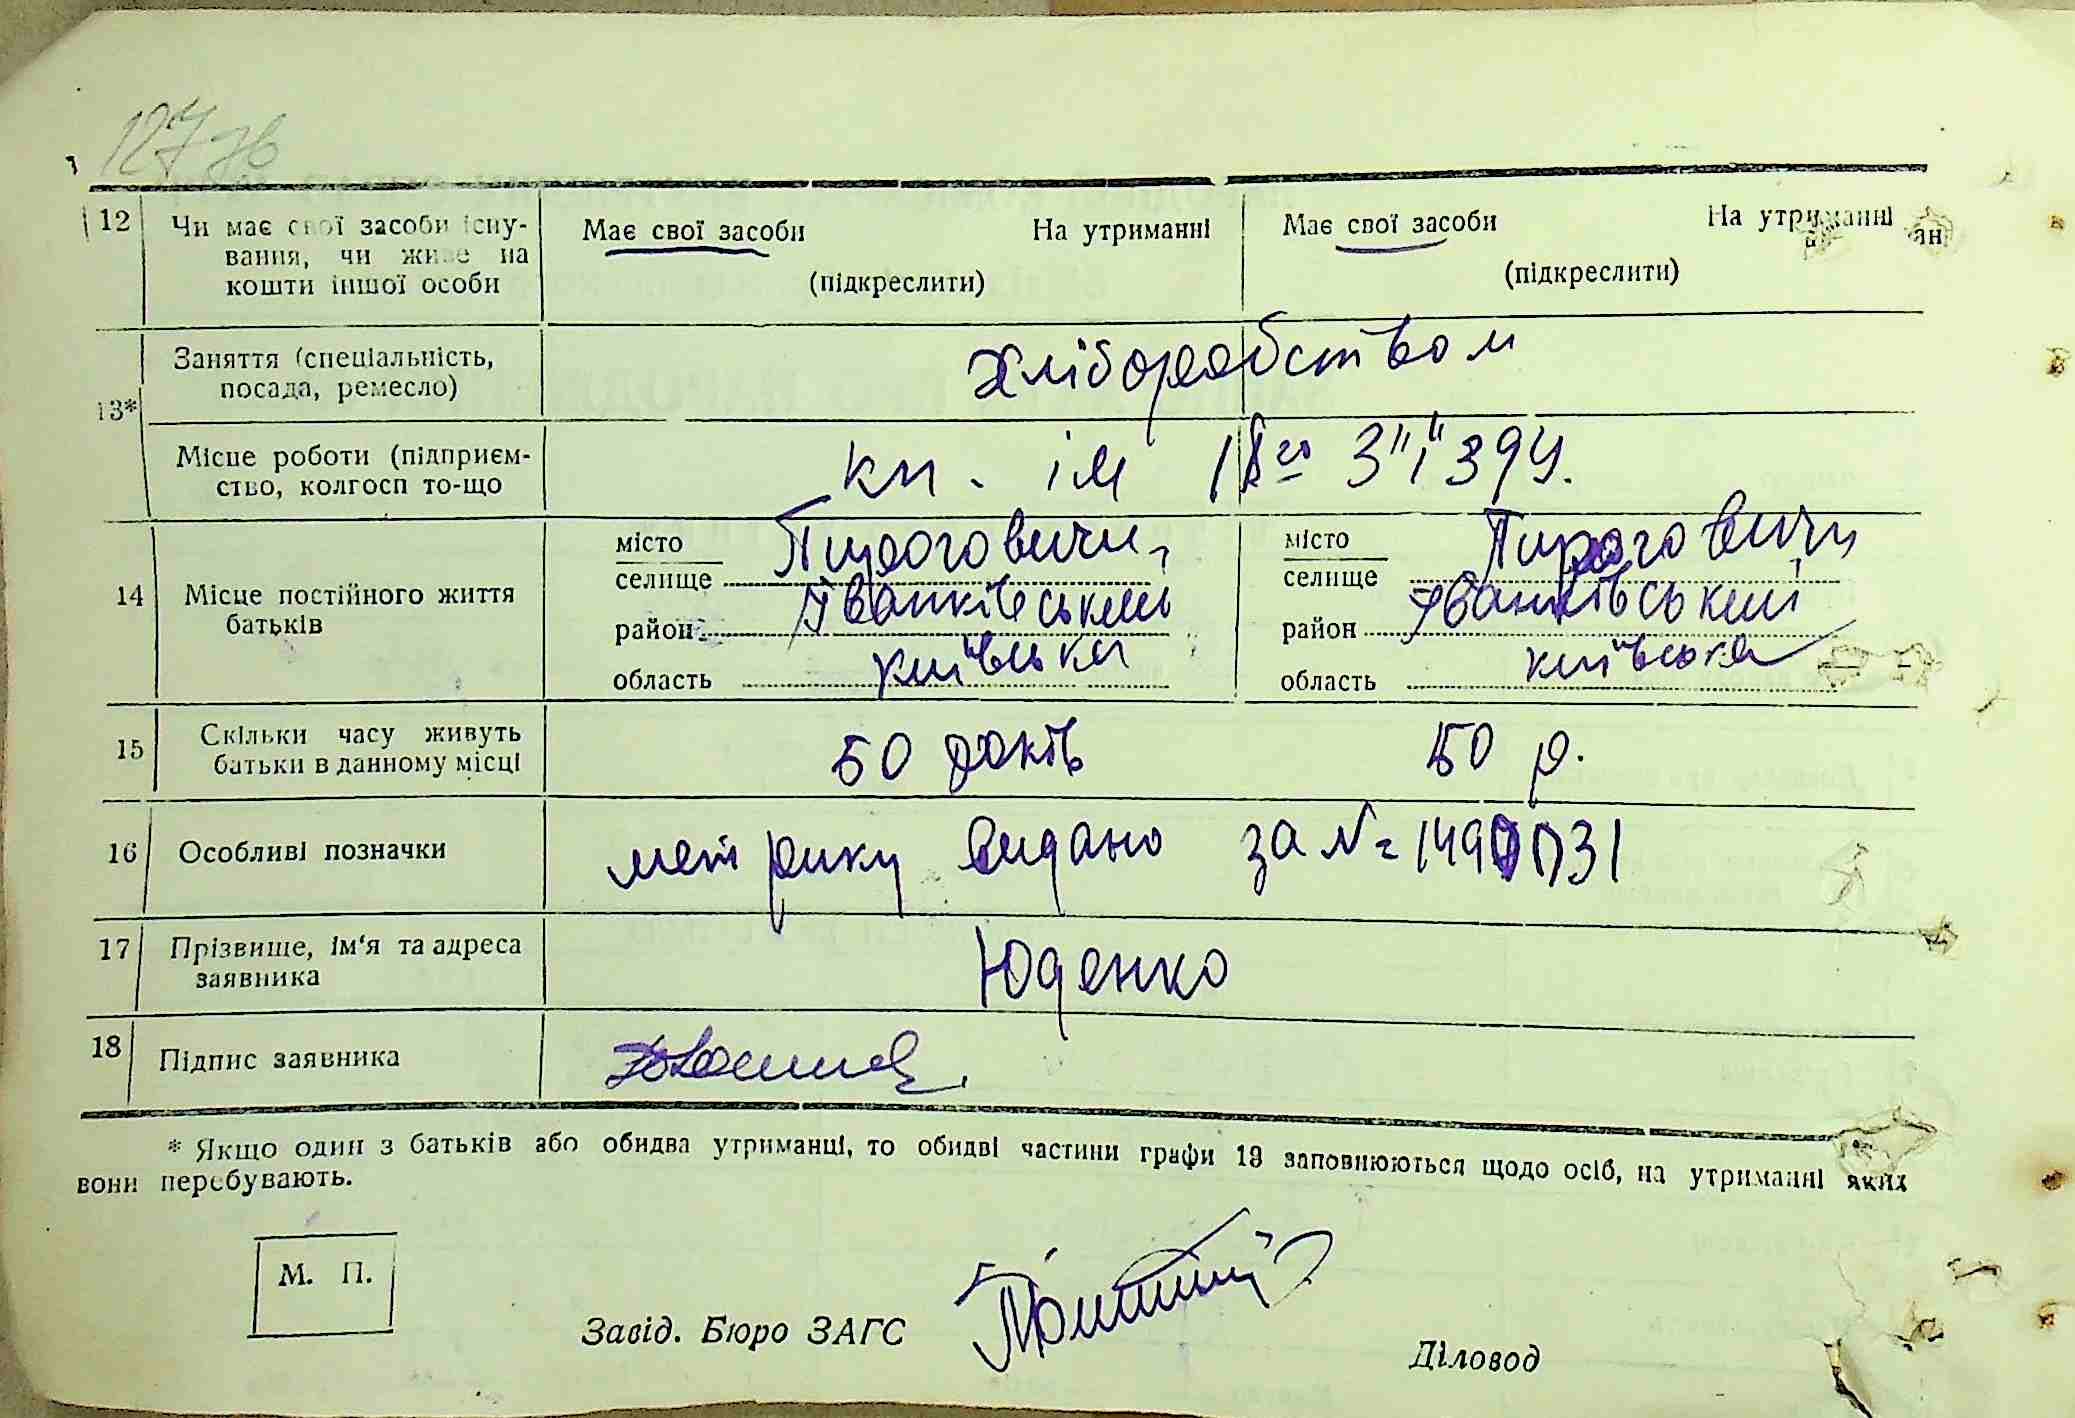 127 зв
12 Чи має свої засоби існування, чи живе на кошти іншої особи
Має свої засоби На утриманні (підкреслити)
Має свої засоби На утриманні (підкреслити)
13* Заняття (спеціальність, посада, ремесло)
хліборобством
Місце роботи (підприєм-
ство, колгосп то-що
кп. ім 18го
14 Місце постійного життя
батьків
місто
селище Пироговичи
район Іванківський
область київська
місто
селище Пироговичи
район Іванківський
область київська
15 Скільки часу живуть
батьки в данному місці
50 років 50 р.
16 Особливі позначки
метрику видано за №
17 Прізвище, ім'я та адреса
заявника
Юденко
18 Підпис заявника
* Якщо один з батьків або обидва утриманці, то обидві частини графи 13 заповнюються щодо осіб, на утриманні яких
вони перебувають.
М. П.
Завід. Бюро ЗАГС
Діловод